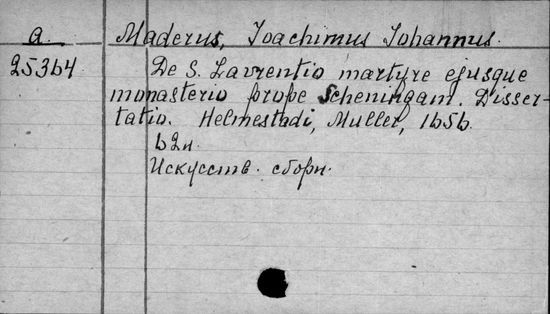 a. Maderus, Joachimus Johannus.
25364 De S. Lavrentio martyre ejusque
monasterio prope Scheningam. Disser-
tatio. Helmestadi, Muller, 1656.
62л.
Искусств. сборн.